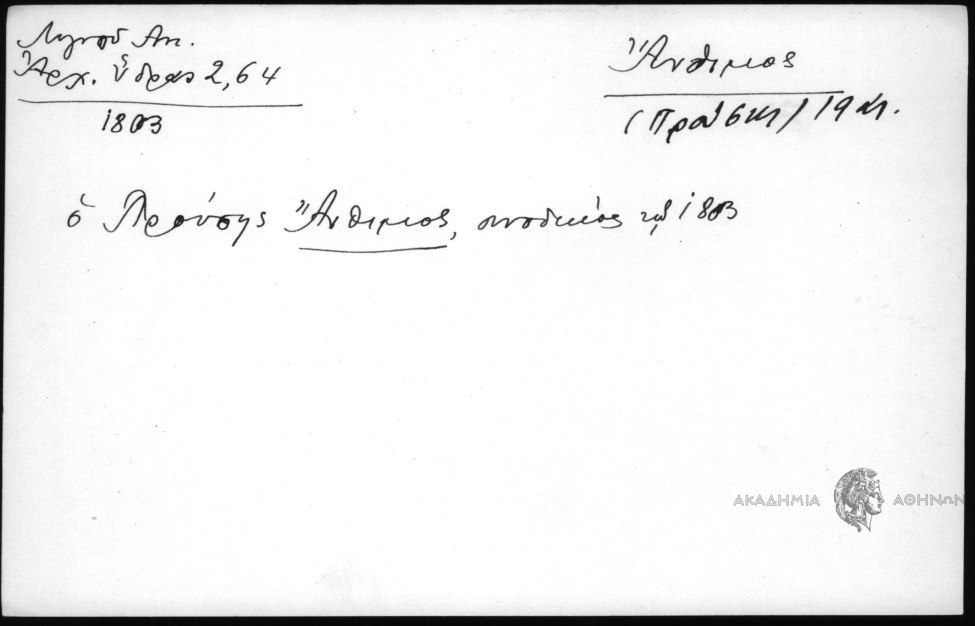 Λιγνοῦ Αντ.
Ἀρχ. Ὕδρας 2, 64
1803
Ἄνθιμος
(Προύσης) 19 αι.
ὁ Προύσης Ἄνθιμος, συνοδικός τῷ 1803
ΑΚΑΔΗΜΙΑ ΑΘΗΝΩΝ